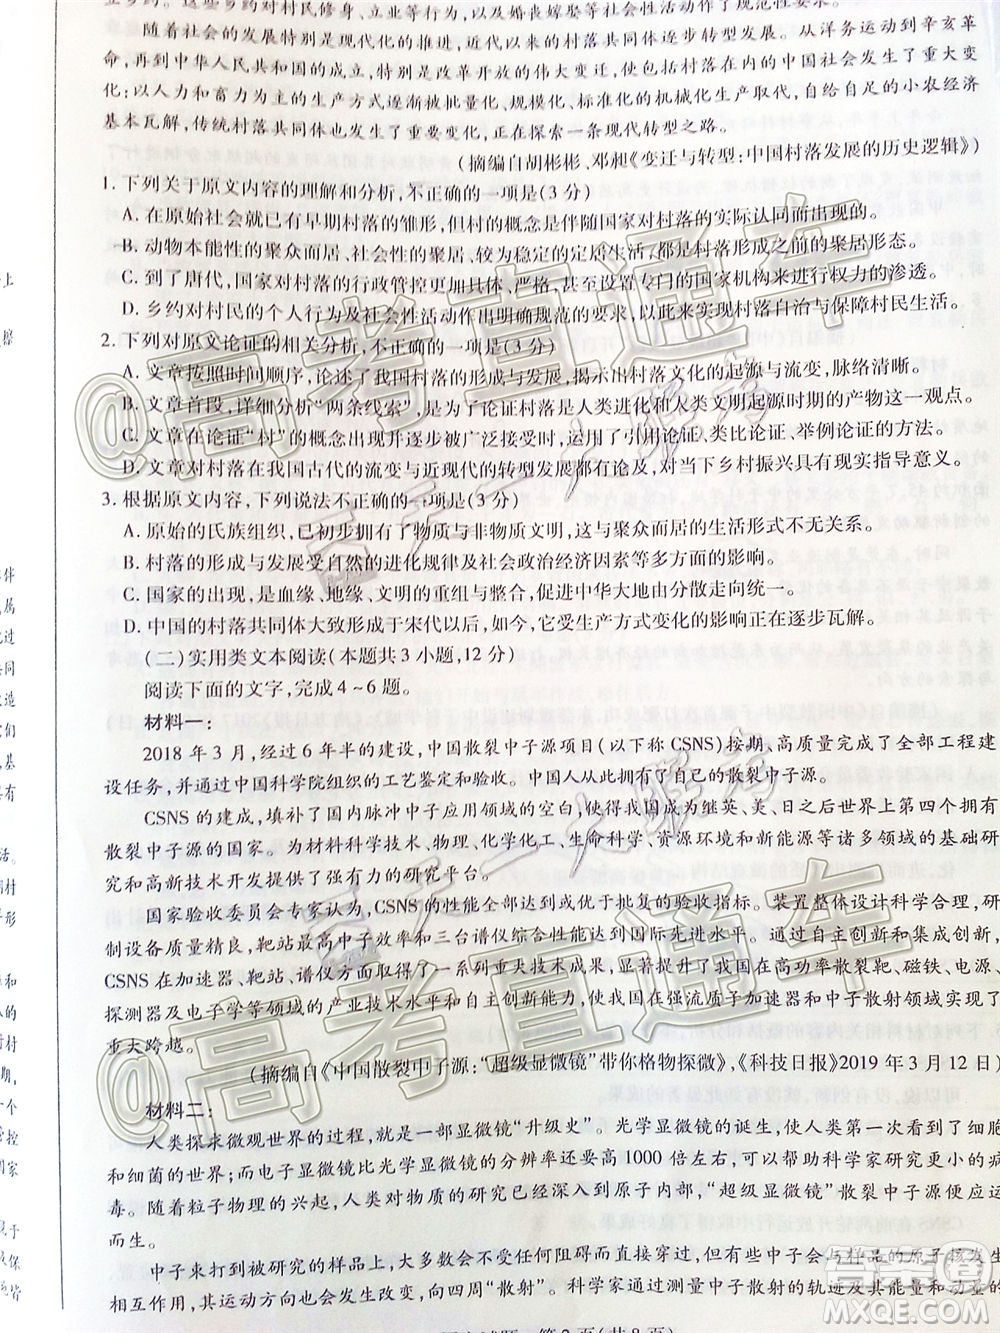 随着社会的发展特别是现代化的推进,近代以来的村落共同体逐步转型发展。从洋务运动到辛亥革
命,再到中华人民共和国的成立,特别是改革开放的伟大变迁,使得村落在内的中国社会发生了重大变
化;以人力和畜力为主的生产方式渐渐被批量化、规模化、标准化的机械化生产取代,自给自足的小农经济
基本瓦解,传统村落共同体也发生了重要变化,正在探索一条现代转型之路。
(摘编自胡彬彬、邓昶《变迁与转型:中国村落发展的历史逻辑》)
1. 下列关于原文内容的理解和分析,不正确的一项是(3分)
A. 在原始社会就已有早期村落的雏形,但村的概念是伴随国家对村落的实际认同而出现的。
B. 动物本能性的聚众而居、社会性的聚居、较为稳定的定居生活,都是村落形成之前的聚居形态。
C. 到了唐代,国家对村落的行政管控更加具体、严格,甚至设置专门的国家机构来进行权力的渗透。
D. 乡约对村民的个人行为及社会活动作出明确规范的要求,以此来实现村落自治与保障村民生活。
2. 下列对原文论证的相关分析,不正确的一项是(3分)
A. 文章按照时间顺序,论述了我国村落的形成与发展,揭示出村落文化的起源与流变,脉络清晰。
B. 文章首段,详细分析“两条线索”,是为了论证村落是人类进化和人类文明起源时期的产物这一观点。
C. 文章在论证“村”的概念出现的历史进程中,运用了引用论证、类比论证、举例论证的方法。
D. 文章对村落在我国古代的流变与近现代的转型发展都有论及,对当下乡村振兴具有现实指导意义。
3. 根据原文内容,下列说法不正确的一项是(3分)
A. 原始的氏族组织,已初步拥有了物质与非物质文明,这与聚众而居的生活形式不无关系。
B. 村落的发展受自然的进化规律及社会政治经济因素等多方面的影响。
C. 国家的出现,是血缘、地缘、文明的重组与整合,促使中华大地由分散走向统一。
D. 中国的村落共同体大致形成于宋代以后,如今,它受生产方式变化的影响正在逐步瓦解。
(二)实用类文本阅读(本题共3小题,12分)
阅读下面的文字,完成4~6题。
材料一:
2018年3月,经过6年半的建设,中国散裂中子源项目(以下称CSNS)按期、高质量完成了全部工程建
设任务,并通过中国科学院组织的工艺鉴定和验收。中国人从此拥有了自己的散裂中子源。
CSNS的建成,填补了国内脉冲中子应用领域的空白,使得我国成为继英、美、日之后世界上第四个拥有
散裂中子源的国家。为材料科学技术、物理、化学化工、生命科学、资源环境和新能源等诸多领域的基础研
究和高新技术开发提供了强有力的研究平台。
国家验收委员会专家认为,CSNS的性能全部达到或优于批复的验收指标。装置整体设计科学合理,研
制设备质量精良,靶站最高中子效率和三台谱仪综合性能达到国际先进水平。通过自主创新和集成创新,
CSNS在加速器、靶站、谱仪方面取得了一系列重大技术成果,显著提升了我国在高功率散裂靶、磁铁、电源、
探测器及电子学等领域的产业技术水平和自主创新能力,使我国在强流质子加速器和中子散射领域实现了
重大跨越。
(摘编自《中国散裂中子源:“超级显微镜”带你格物探微》,《科技日报》2019年3月12日)
材料二:
人类探求微观世界的过程,就是一部显微镜“升级史”。光学显微镜的诞生,使人类第一次看到了细胞
和细菌的世界;而电子显微镜比光学显微镜的分辨率还要高1000倍左右,可以帮助科学家研究更小的病
毒。随着粒子物理的兴起,人类对物质的研究已经深入到原子内部,“超级显微镜”散裂中子源便应运
而生。
中子束打在被研究的样品上,大多数会不受任何阻碍而直接穿过,但有些中子会与样品的原子核发生
相互作用,其运动方向也会发生改变,向四周“散射”。科学家通过测量中子散射的轨迹及其能量和动量的